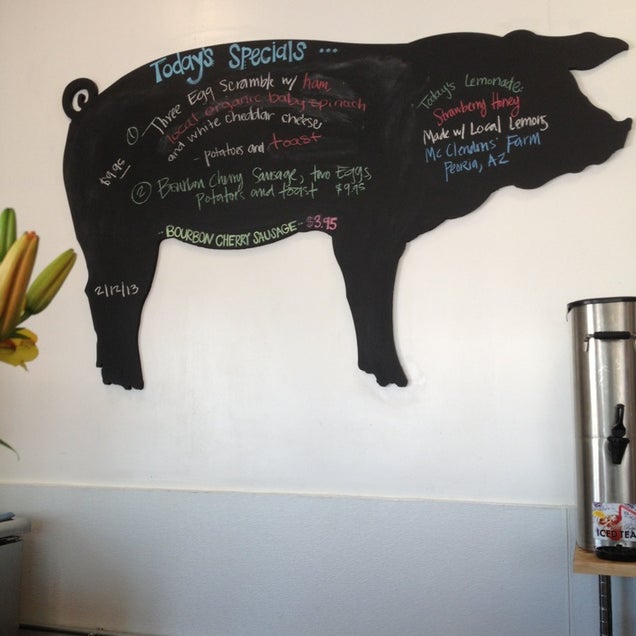 Today's Specials ...
① Three Egg Scramble w/ ham
local organic baby spinach
and white cheddar cheese
- potatoes and toast
$9.95
② Bourbon Cherry Sausage, two Eggs
Potatoes and toast $9.95
- BOURBON CHERRY SAUSAGE - $3.95
2/12/13
Today's Lemonade:
Strawberry Honey
Made w/ Local Lemons
McClendons' Farm
Peoria, AZ
ICED TEA